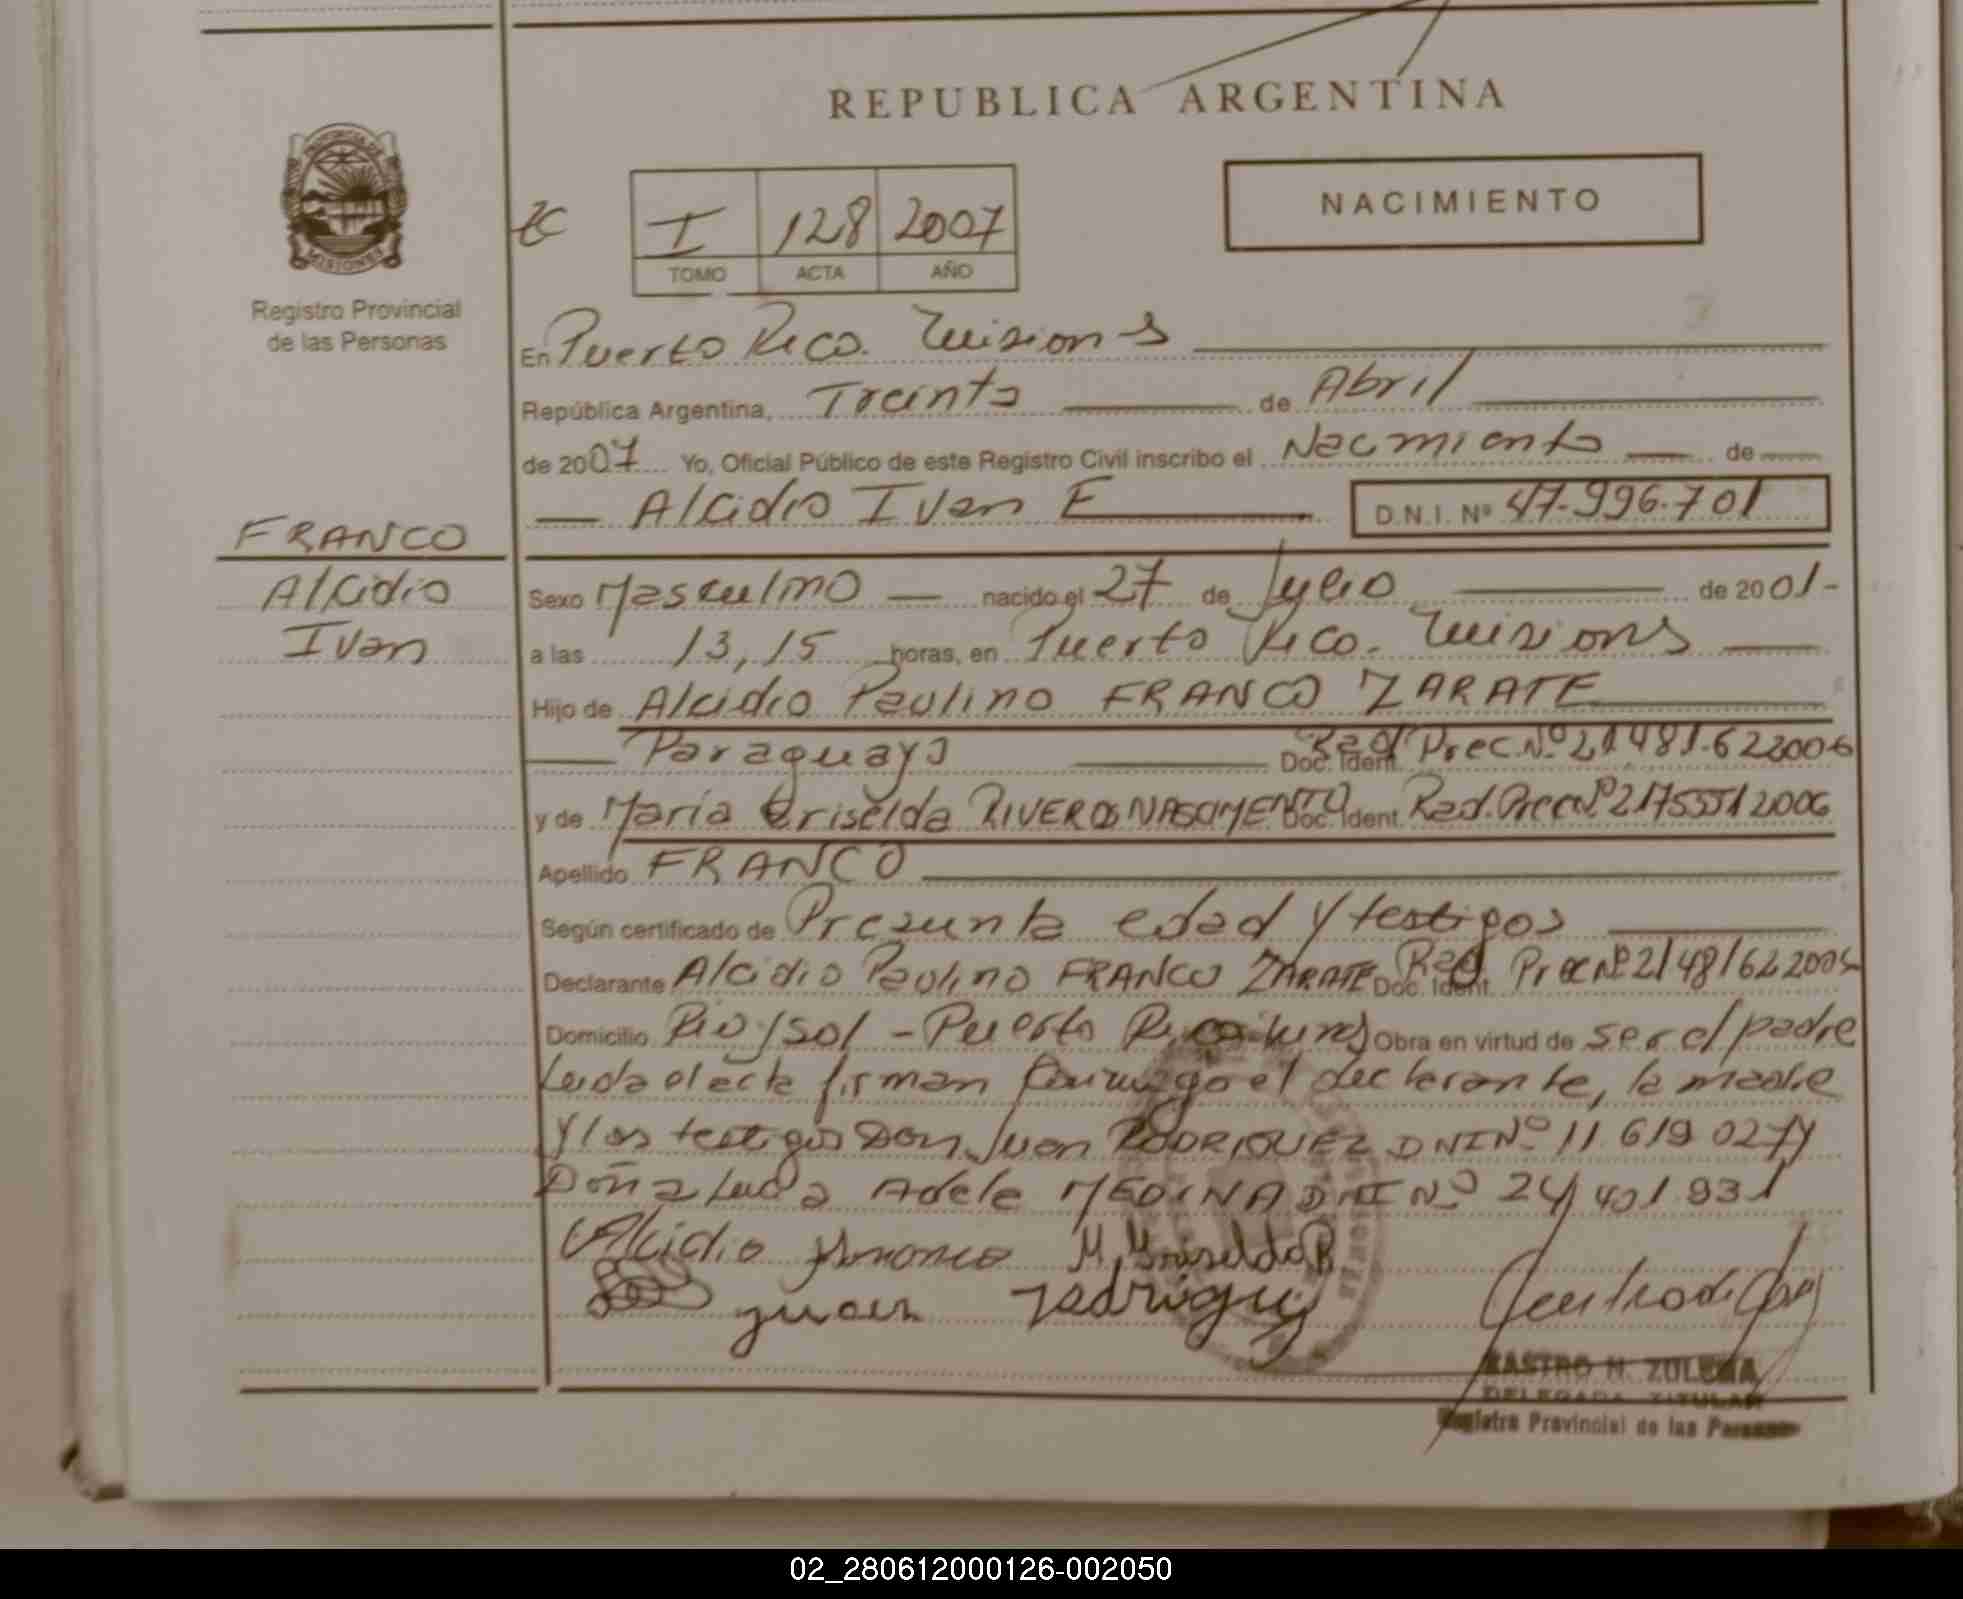 REPUBLICA ARGENTINA
PROVINCIA DE
MISIONES
Registro Provincial
de las Personas
I 128 2007
TOMO ACTA AÑO
NACIMIENTO
En Puerto Rico. Misiones
República Argentina, Treinta de Abril
de 2007 Yo, Oficial Público de este Registro Civil inscribo el Nacimiento de
Alcidio Ivan F D.N.I. Nº 47.996.701
FRANCO
Alcidio
Ivan
Sexo Masculino nacido el 27 de Julio de 2001-
a las 13,15 horas, en Puerto Rico. Misiones
Hijo de Alcidio Paulino FRANCO ZARATE
Paraguayo Doc. Ident. Rad. Prec. Nº 21481.622006
y de María Griselda RIVEROS NASCIMENTO Doc. Ident. Rad. Prec Nº 21755512006
Apellido FRANCO
Según certificado de Presunta edad y testigos
Declarante Alcidio Paulino FRANCO ZARATE Doc. Ident. Rad. Prec Nº 21481622006
Domicilio - Puerto Rico Obra en virtud de ser el padre
Leida el acta firman conmigo el declarante, la madre
y los testigos Don Juan RODRIGUEZ DNI Nº 11.619.027 y
Doña Lucia Adela MEDINA DNI Nº 24.401.931
Alcidio Franco M. Griselda R
Juan Rodriguez
CASTRO N. ZULEMA
DELEGADA TITULAR
Registro Provincial de las Personas
02_280612000126-002050